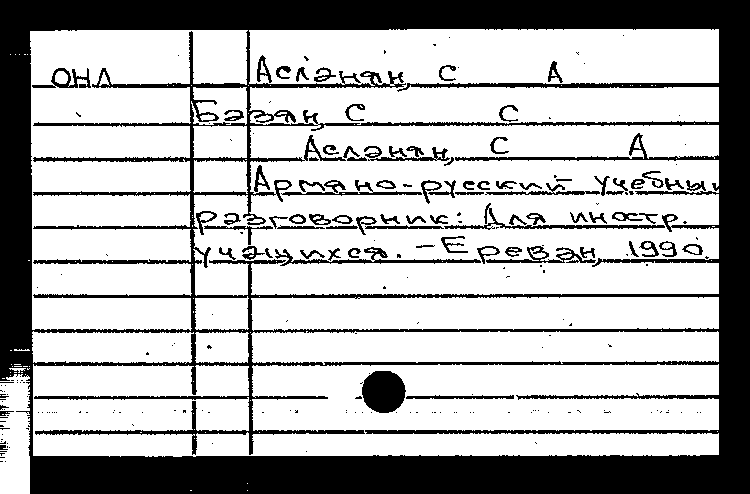 ОНЛ Асланян, С А
Базян, С С
Асланян, С А
Армяно-русский учебны
разговорник: Для иностр.
учащихся. - Ереван, 1990.